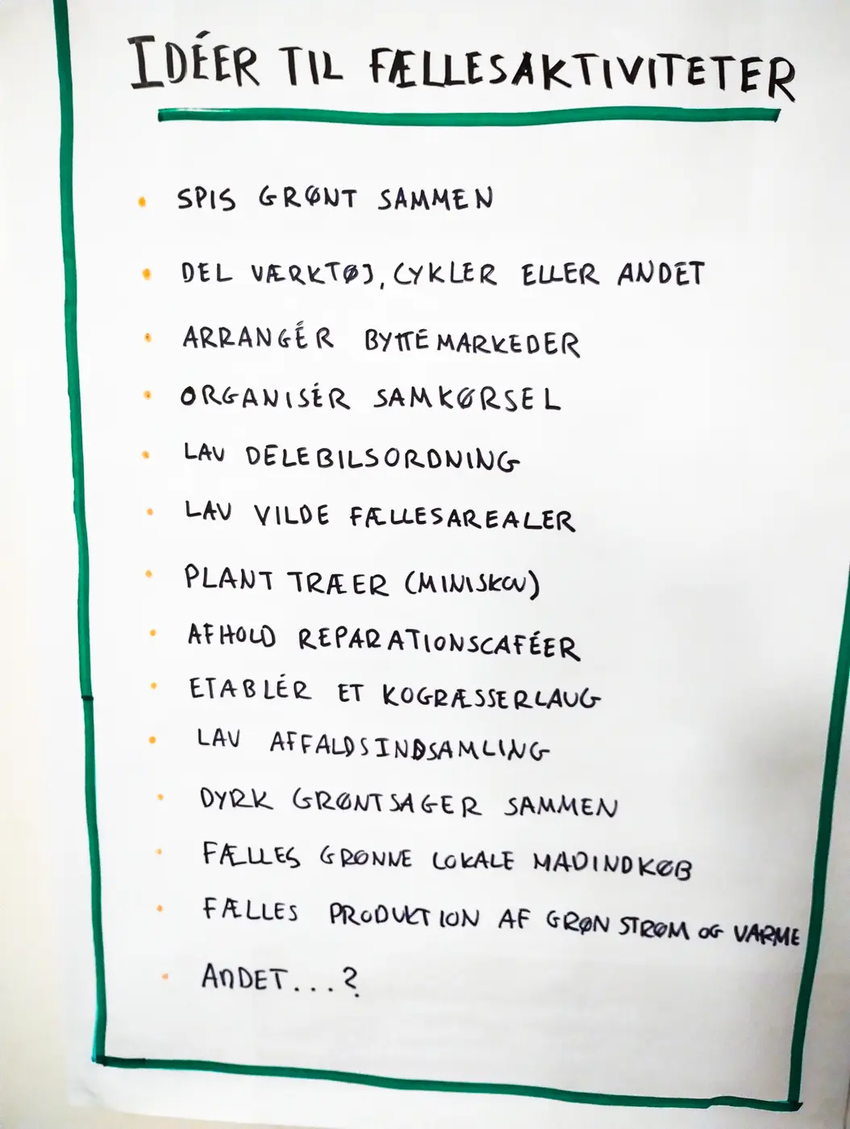 IDÉER TIL FÆLLESAKTIVITETER
• SPIS GRØNT SAMMEN
• DEL VÆRKTØJ, CYKLER ELLER ANDET
• ARRANGÉR BYTTEMARKEDER
• ORGANISÉR SAMKØRSEL
• LAV DELEBILSORDNING
• LAV VILDE FÆLLESAREALER
• PLANT TRÆER (MINISKOV)
• AFHOLD REPARATIONSCAFÉER
• ETABLÉR ET KOGRÆSSERLAUG
• LAV AFFALDSINDSAMLING
• DYRK GRØNTSAGER SAMMEN
• FÆLLES GRØNNE LOKALE MADINDKØB
• FÆLLES PRODUKTION AF GRØN STRØM OG VARME
• ANDET...?